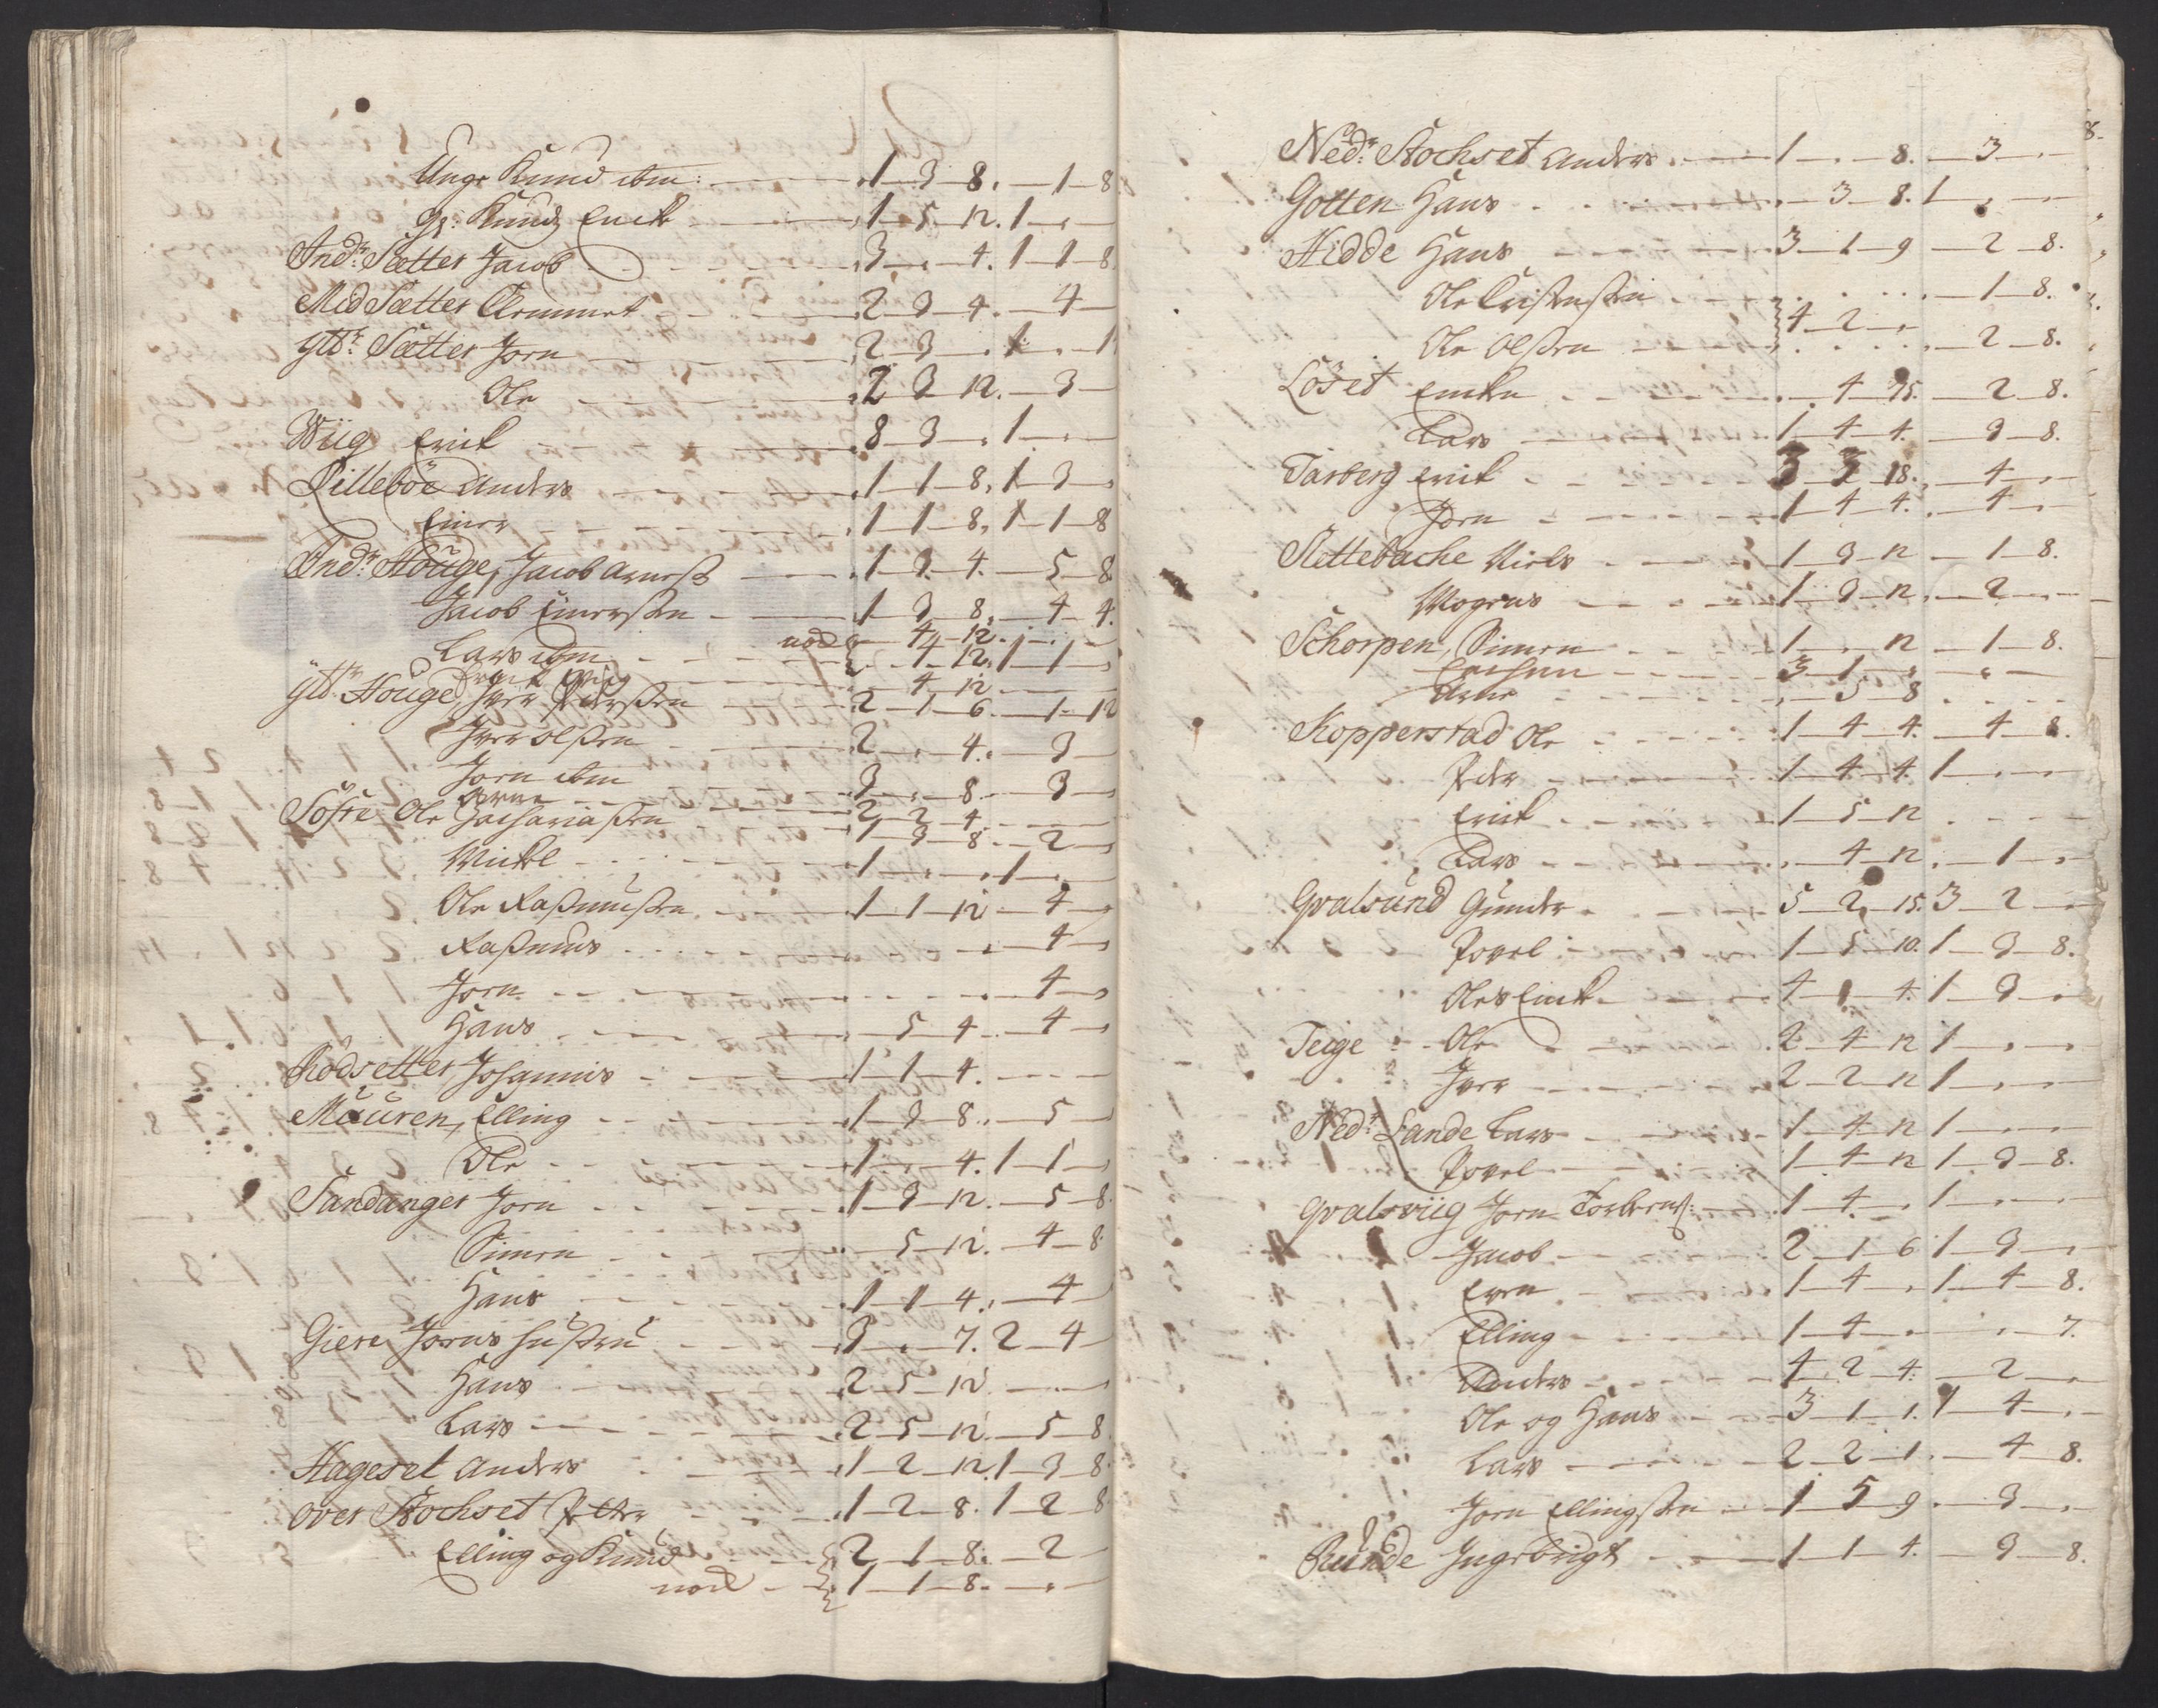 Unge Knud ibm: 1 3 8. 1 8
Gl: Knud Erick 1 5 12. 1
Ind:r Sætter Jacob 3 4. 1 1 8
Mid Sætter Clemmet 2 3 4. 4
Ytt:r Sætter Jorn 2 3 1 1
Ole 2 3 12. 3
Wiig Erick 8 3 1
Lilleböe Anders 1 1 8, 1 3
Einer 1 1 8, 1 1 8
Ind:r Houge, Jacob Arneß 1 3 4. 5 8
Jacob Einerßen 1 3 8, 4 4.
Lars ibm nod 4 12
1 12. 1 1
Erick Wiig 4 12
Ytt:r Houge, Iver Pederßen 2 1 6 1 12
Iver Olßen 2 4. 3
Jorn ibm 3 8 3
Arne 2 2 4
Söfre Ole Zachariaßen 1 3 8 2
Mickel 1 1
Ole Raßmußen 1 1 12 4
Raßmus 4
Jorn 4
Hans 5 4 4
Rödsetter Johannis 1 1 4.
Mauren, Elling 1 3 8. 5
Ole 1 4. 1 1
Sandanger Jorn 1 3 12. 5 8
Simen 5 12. 4 8
Hans 1 1 4. 4
Giere, Joens hustru 3 7. 2 4
Hans 2 5 12
Lars 2 5 12. 5 8
Hageset Anders 1 2 12. 1 3 8
Over Stochset Peder 1 2 8. 1 2 8
Elling og Knud 2 1 8. 2
nod 1 1 8.
Ned:r Stochset Anders 1 8. 3
Gotten Hans 3 8. 1
Hidde Hans 3 1 9 2 8.
Ole Cristenßen 1 8.
4 2
Ole Olßen 2 8.
Löset Encken 4 15. 2 8.
Lars 1 4 4. 3 8.
Tarberg Erick 3 3 18. 4
Jorn 1 4 4. 4
Slettebache Niels 1 3 12 1 8.
Mogens 1 3 12. 2
Schorpen, Simen 1 12 1 8.
3 1
Arne 5 8
Kopperstad Ole 1 4 4. 4 8.
Peder 1 4 4. 1
Erick 1 5 12
Lars 4 12. 1
Qvalsund Gunder 5 2 15. 3 2
Povel 1 5 10. 1 3 8.
Oles Encke 4 1 4. 1 3
Teige Ole 2 4 12 1
Iver 2 2 12 1
Ned:r Lande Lars 1 4 12 1
Povel 1 4 12 1 3 8.
Qvalsviig Jorn Torbernß: 1 4 1
Jacob 2 1 6 1 3
Even 1 4 1 4 8.
Elling 1 4 7.
Anders 4 2 4. 2
Ole og Hans 3 1 1. 1 4
Lars 2 2 1 4 8.
Jorn Ellingßen 1 5 9. 3
Runde Ingebrigt 1 1 4. 3 8.